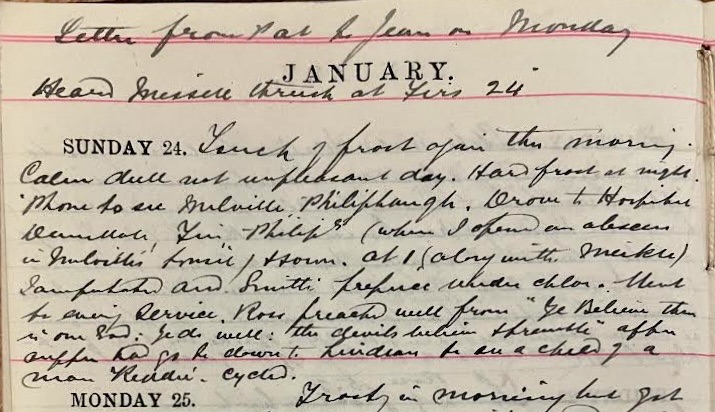 Letter from Pat & Jean on Monday
JANUARY.
Heard Missell thrush at Firs 24
SUNDAY 24. Touch of frost again this morning.
Calm dull not unpleasant day. Hard frost at night.
'Phone to see Melville Philiphaugh. Drove to Hospital
Firs, Philip (when I opened an abscess
in Melville's tonsil) & town. At 1 (along with Meikle)
I amputated And. Smith's prepuce under chlor. Went
to evening service. Ross preached well from "Ye Believe there
is one God: Ye do well: the devils believe & tremble" after
supper had to go down to to see a child of a
man Keddie. Cycled.
MONDAY 25. Frosty in morning but got